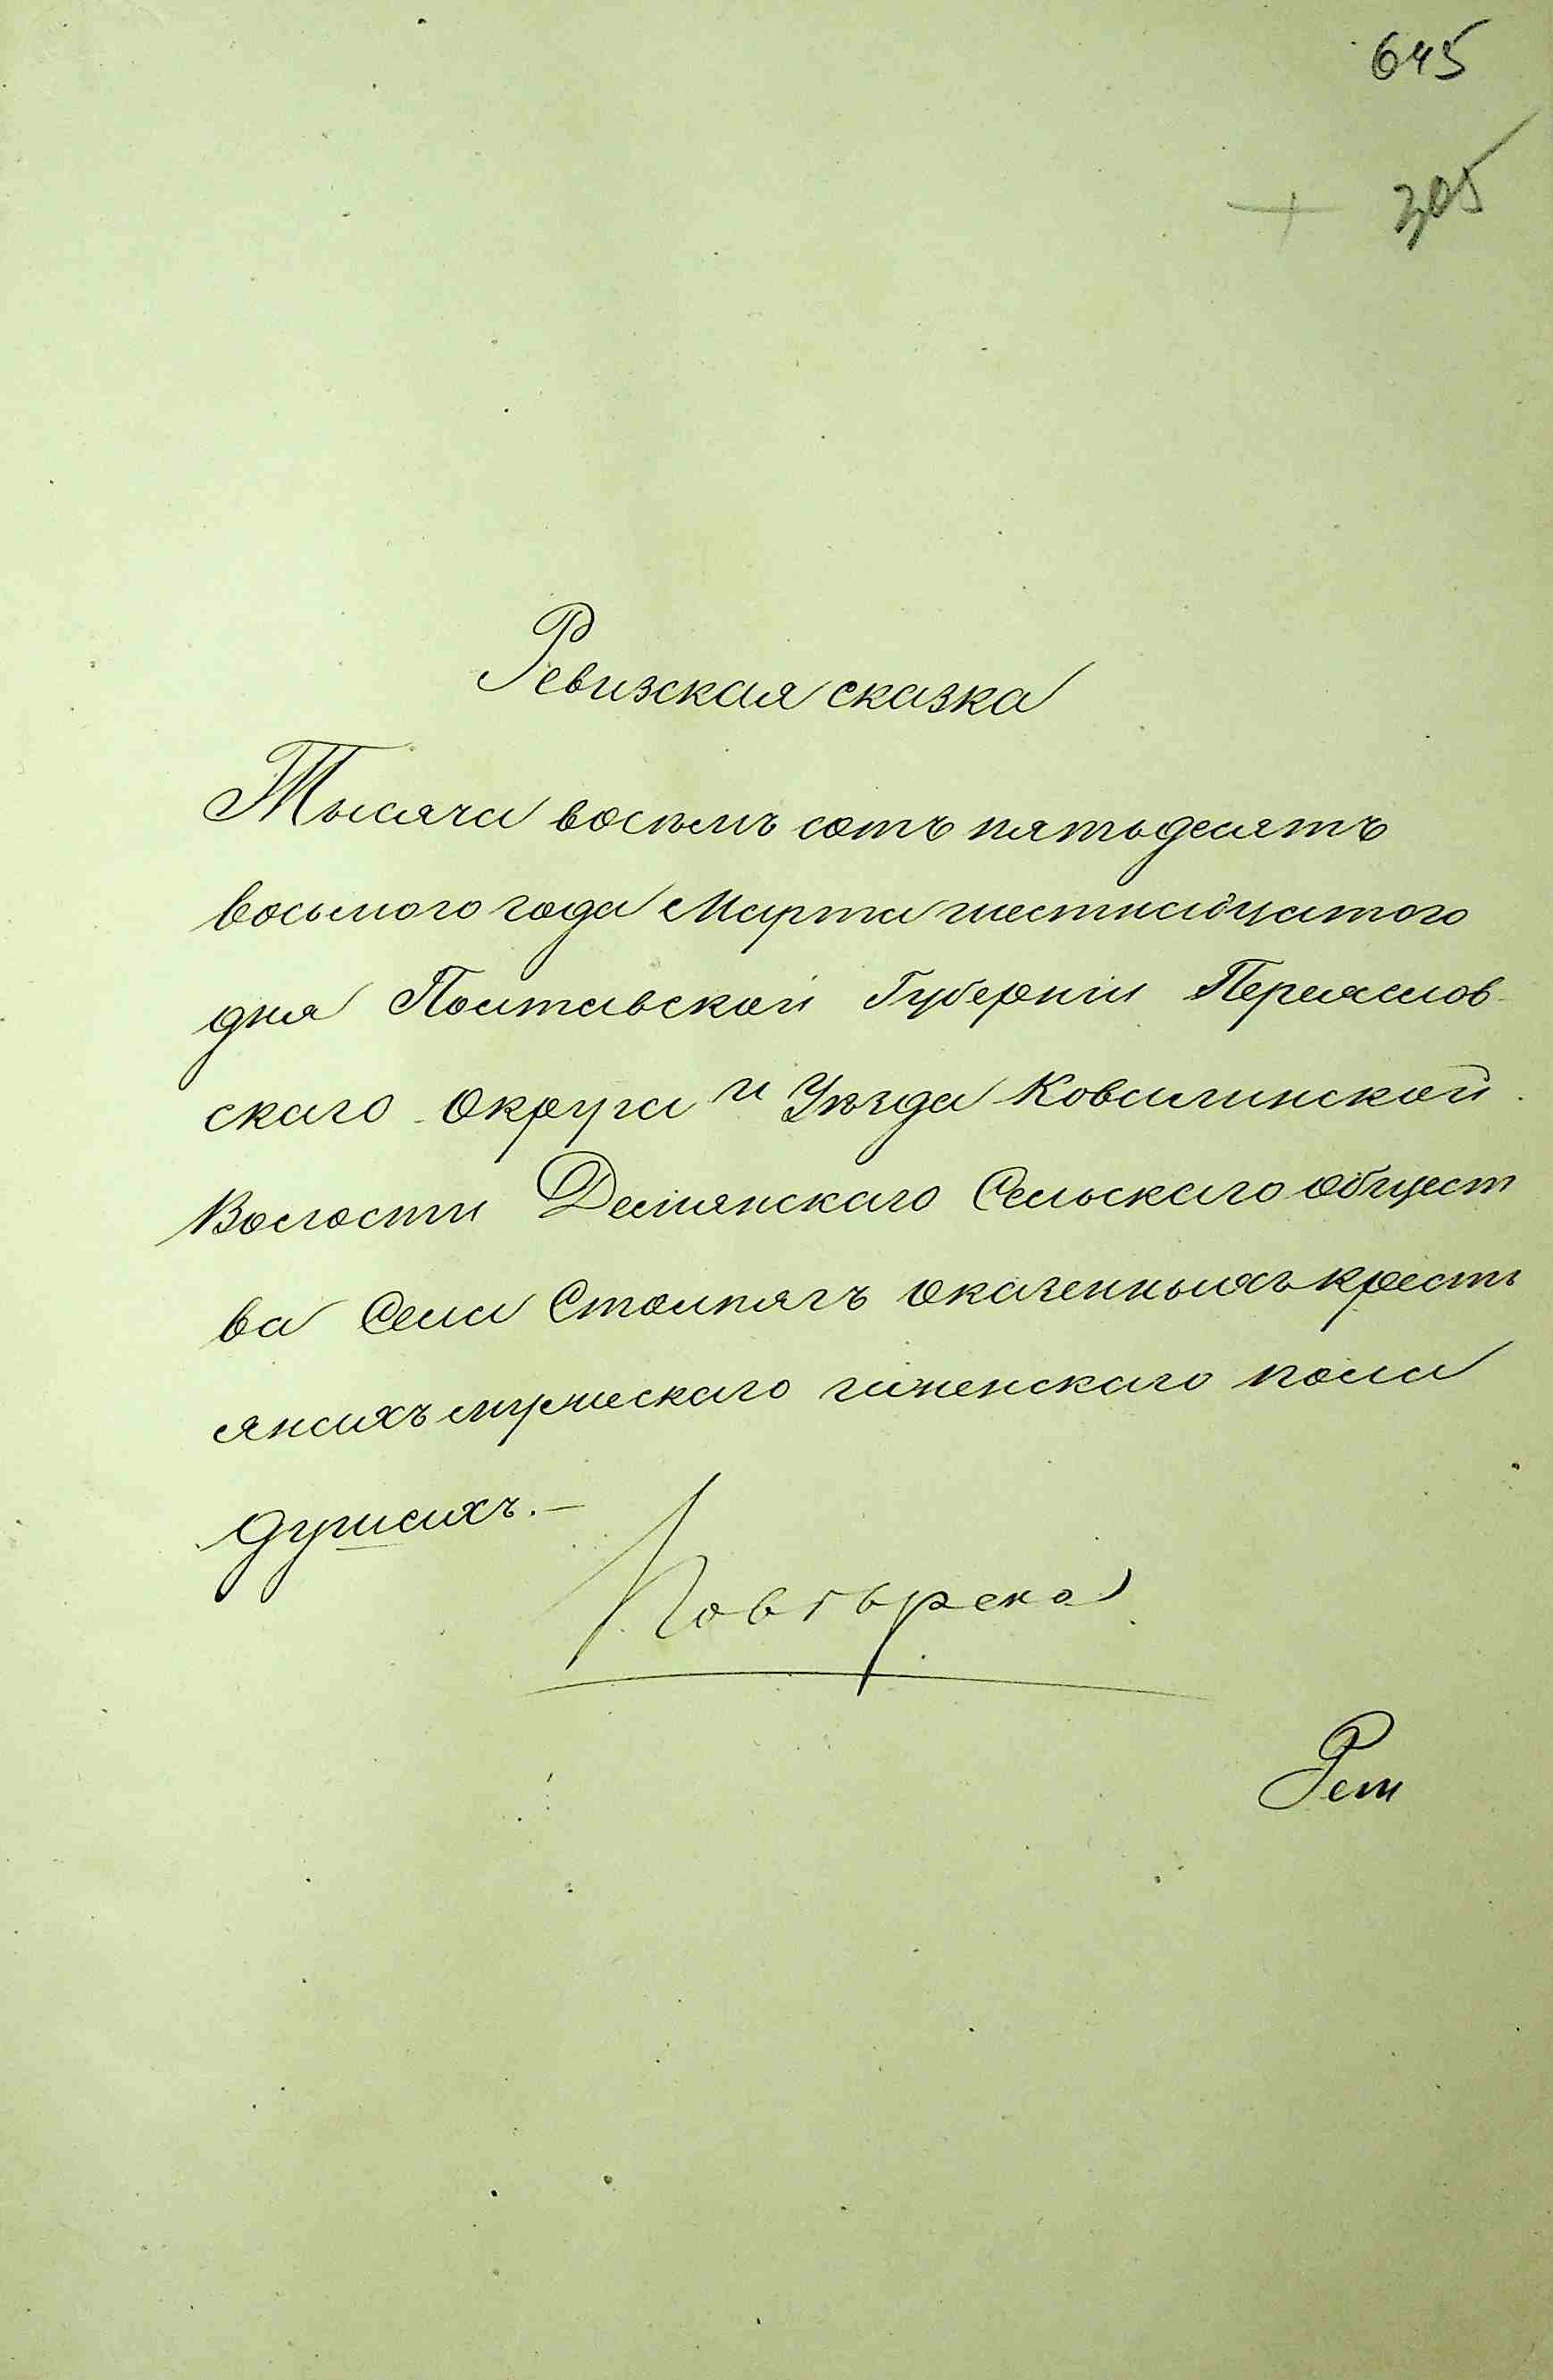 645
305
Ревизская сказка
Тысяча восемь сотъ пятьдесятъ
восьмого года Марта шестнадцатого
дня Полтавской Губерніи Переяслов-
скаго Округа и Уѣзда Ковалинской
Волости Демянскаго Сельскаго общест
ва Села Столпягъ о казенныхъ кресть
янахъ мужескаго и женскаго пола
душахъ.—